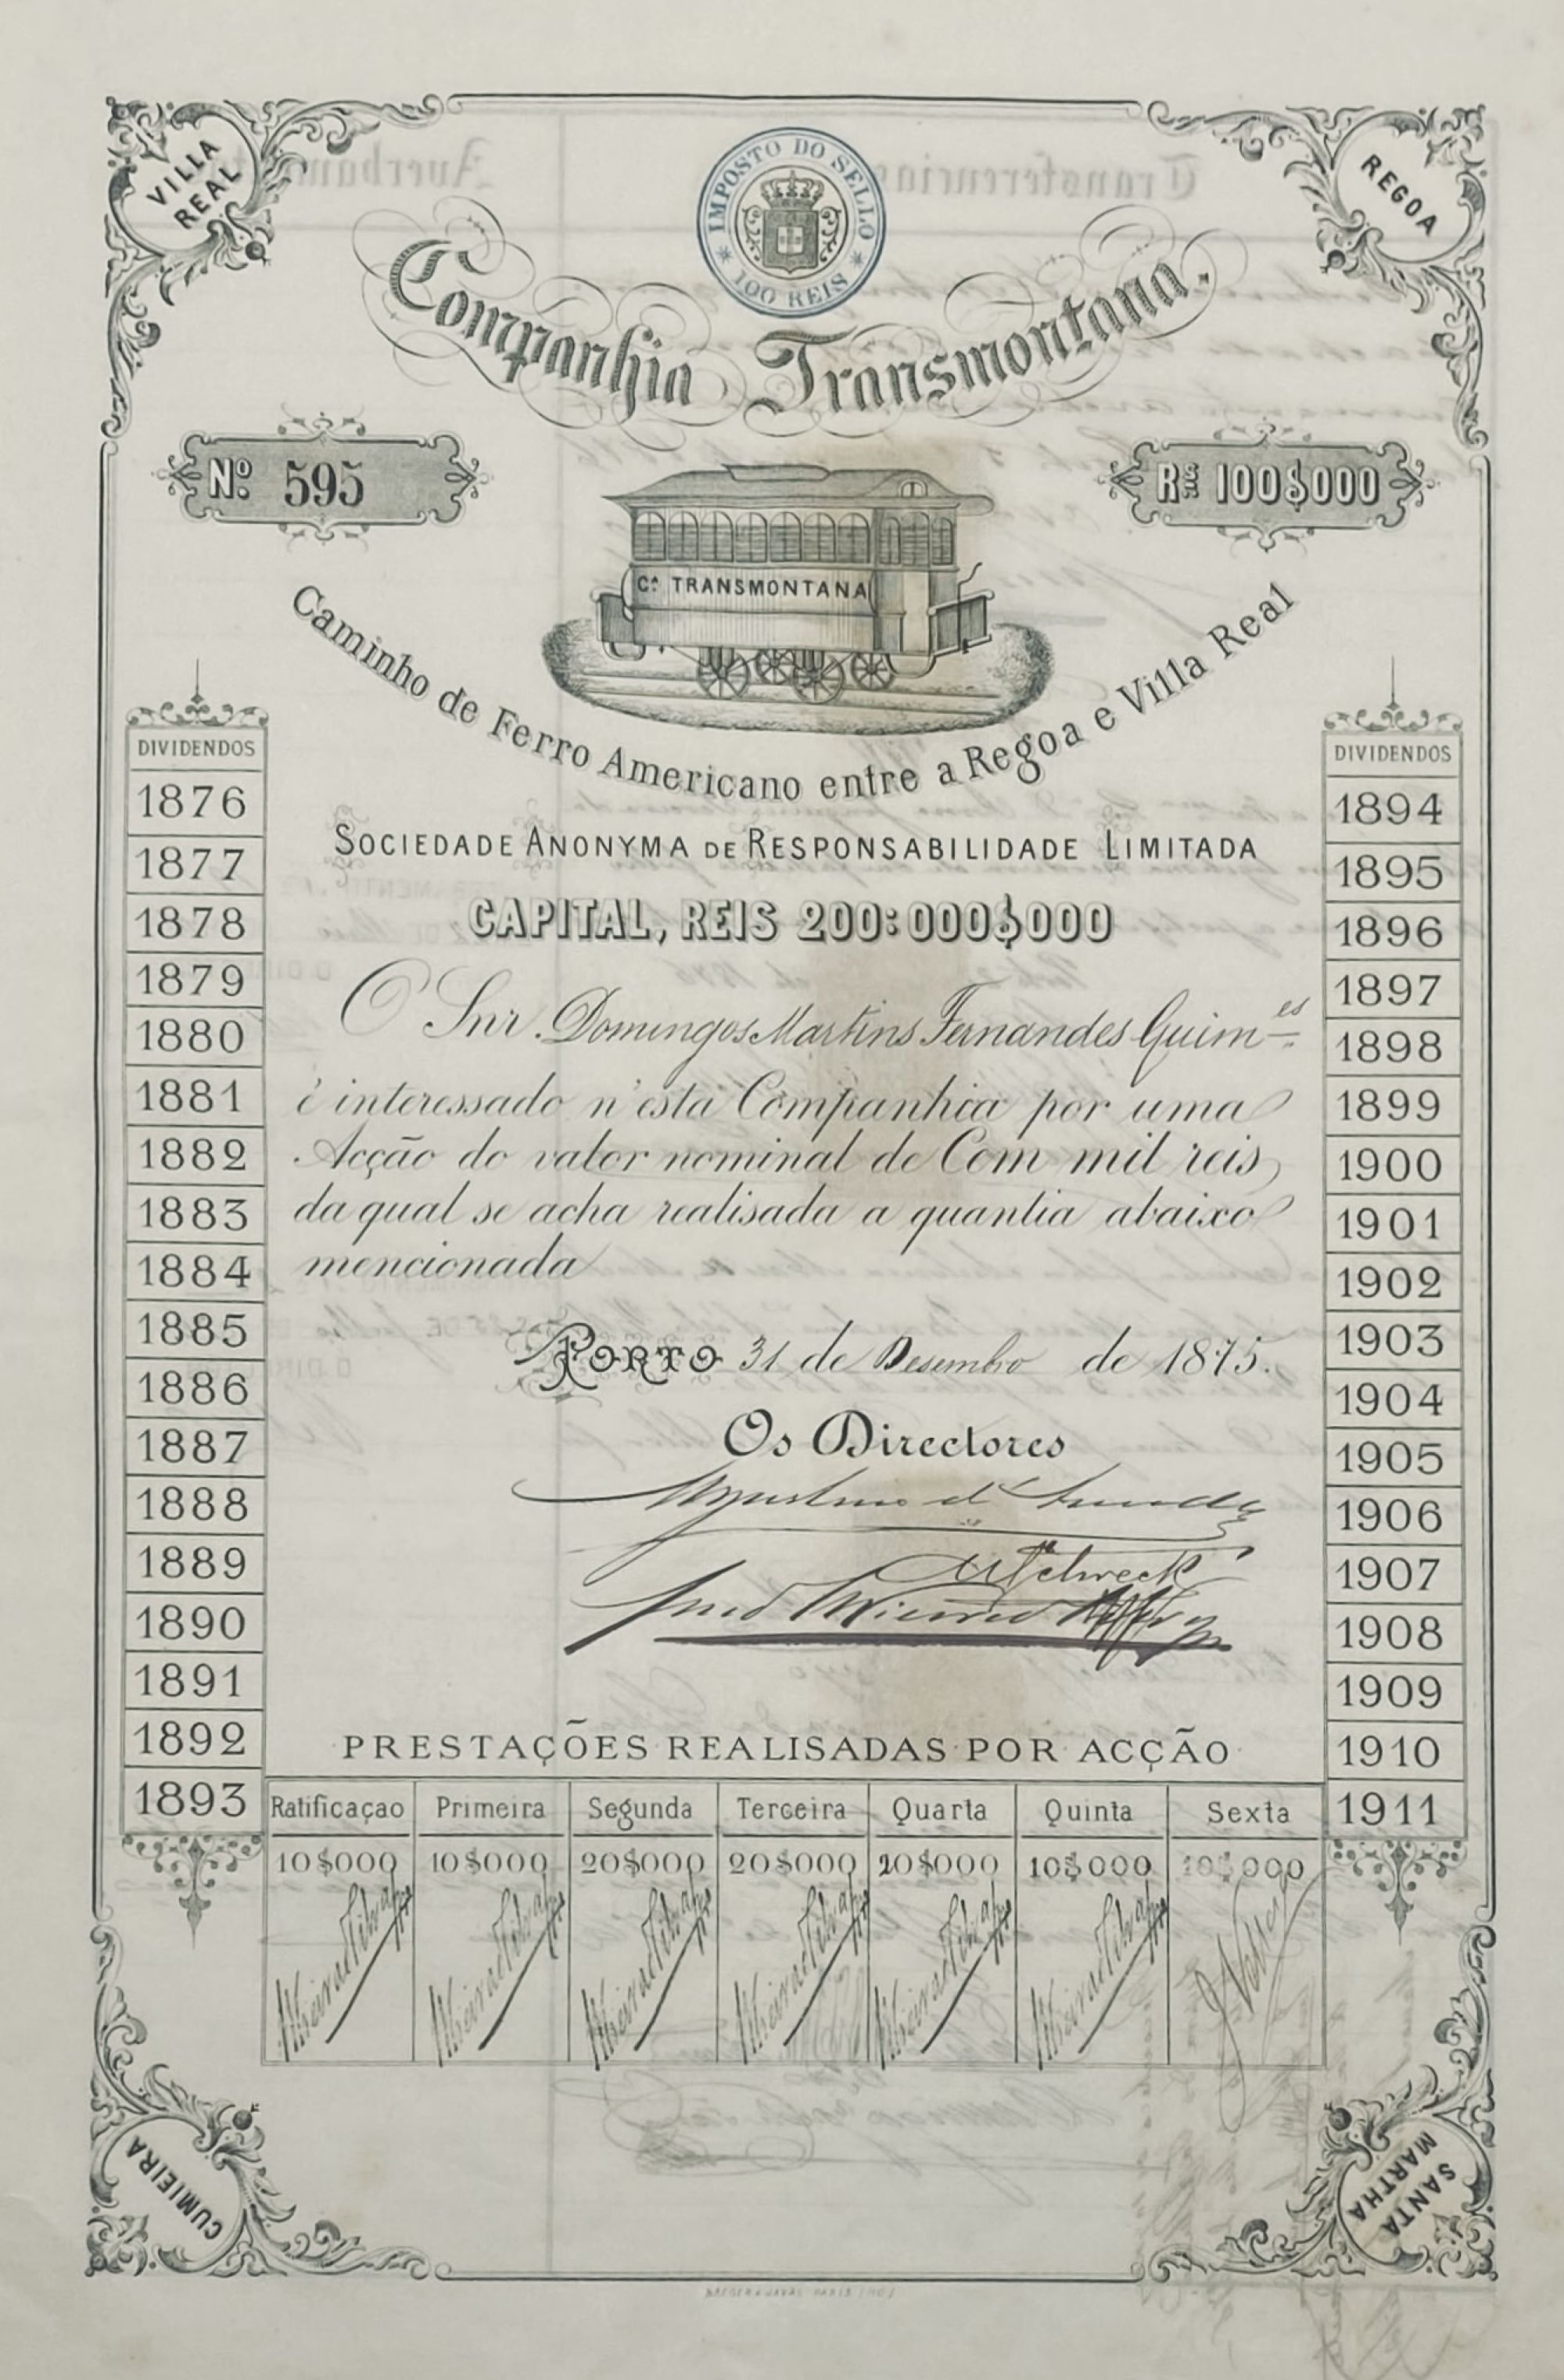 VILLA REAL
REGOA
IMPOSTO DO SELLO
* 100 REIS *
Companhia Transmontana.
Nº 595
Rs 100$000
Cª TRANSMONTANA
Caminho de Ferro Americano entre a Regoa e Villa Real
SOCIEDADE ANONYMA DE RESPONSABILIDADE LIMITADA
CAPITAL, REIS 200:000$000
O Snr. Domingos Martins Fernandes Guim.es
é interessado n'esta Companhia por uma
Acção do valor nominal de Cem mil reis,
da qual se acha realisada a quantia abaixo
mencionada
PORTO 31 de Desembro de 1875.
Os Directores
DIVIDENDOS
1876
1877
1878
1879
1880
1881
1882
1883
1884
1885
1886
1887
1888
1889
1890
1891
1892
1893
DIVIDENDOS
1894
1895
1896
1897
1898
1899
1900
1901
1902
1903
1904
1905
1906
1907
1908
1909
1910
1911
PRESTAÇÕES REALISADAS POR ACÇÃO
Ratificaçao Primeira Segunda Terceira Quarta Quinta Sexta
10$000 10$000 20$000 20$000 20$000 10$000 10$000
CUMIEIRA
SANTA MARTHA